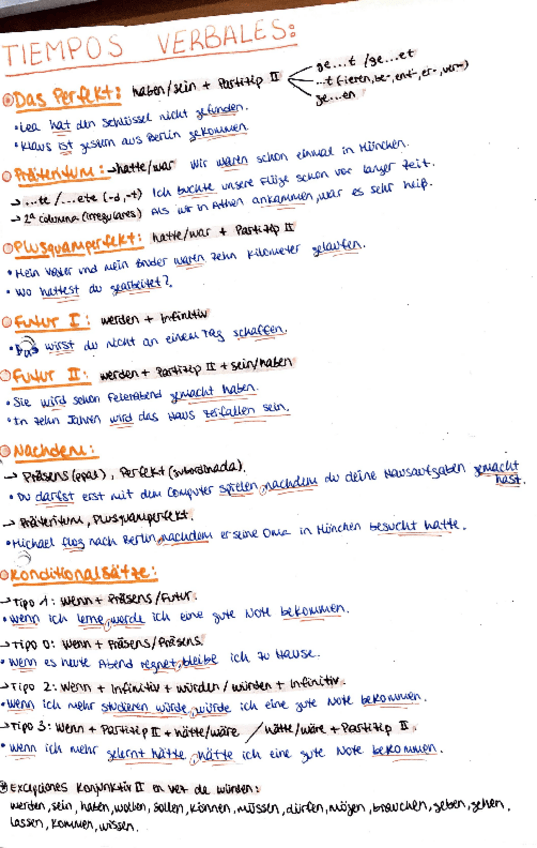 TIEMPOS VERBALES:
Das Perfekt: haben/sein + Partizip II
ge...t /ge...et
...t (-ieren, be-, ent-, er-, ver-)
ge...en
• Lea hat den Schlüssel nicht gefunden.
• Klaus ist gestern aus Berlin gekommen.
Präteritum: → hatte/war Wir waren schon einmal in München.
→ ...te /...ete (-d,-t) Ich buchte unsere Flüge schon vor langer Zeit.
→ 2ª columna (irregulares) Als wir in Athen ankammen, war es sehr heiß.
Plusquamperfekt: hatte/war + Partizip II
• Mein Vater und mein Bruder waren zehn Kilometer gelaufen.
• Wo hattest du gearbeitet?
Futur I: werden + Infinitiv
• Das wirst du nicht an einem Tag schaffen.
Futur II: werden + Partizip II + sein/haben
• Sie wird schon Feierabend gemacht haben.
• In zehn Jahren wird das Haus zerfallen sein.
Nachdem:
→ Präsens (ppal), Perfekt (subordinada).
• Du darfst erst mit dem Computer spielen, nachdem du deine Hausaufgaben gemacht
hast.
→ Präteritum, Plusquamperfekt.
• Michael flog nach Berlin, nachdem er seine Oma in München besucht hatte.
Konditionalsätze:
→ Tipo 1: Wenn + Präsens /Futur.
• Wenn ich lerne, werde ich eine gute Note bekommen.
→ Tipo 0: Wenn + Präsens/Präsens.
• Wenn es heute Abend regnet, bleibe ich zu Hause.
→ Tipo 2: Wenn + Infinitiv + würden / würden + Infinitiv.
• Wenn ich mehr studieren würde, würde ich eine gute Note bekommen.
→ Tipo 3: Wenn + Partizip II + hätte/wäre / hätte/wäre + Partizip II.
• Wenn ich mehr gelernt hätte, hätte ich eine gute Note bekommen.
Excepciones Konjunktiv II en vez de würden:
werden, sein, haben, wollen, sollen, können, müssen, dürfen, mögen, brauchen, geben, gehen,
lassen, kommen, wissen.